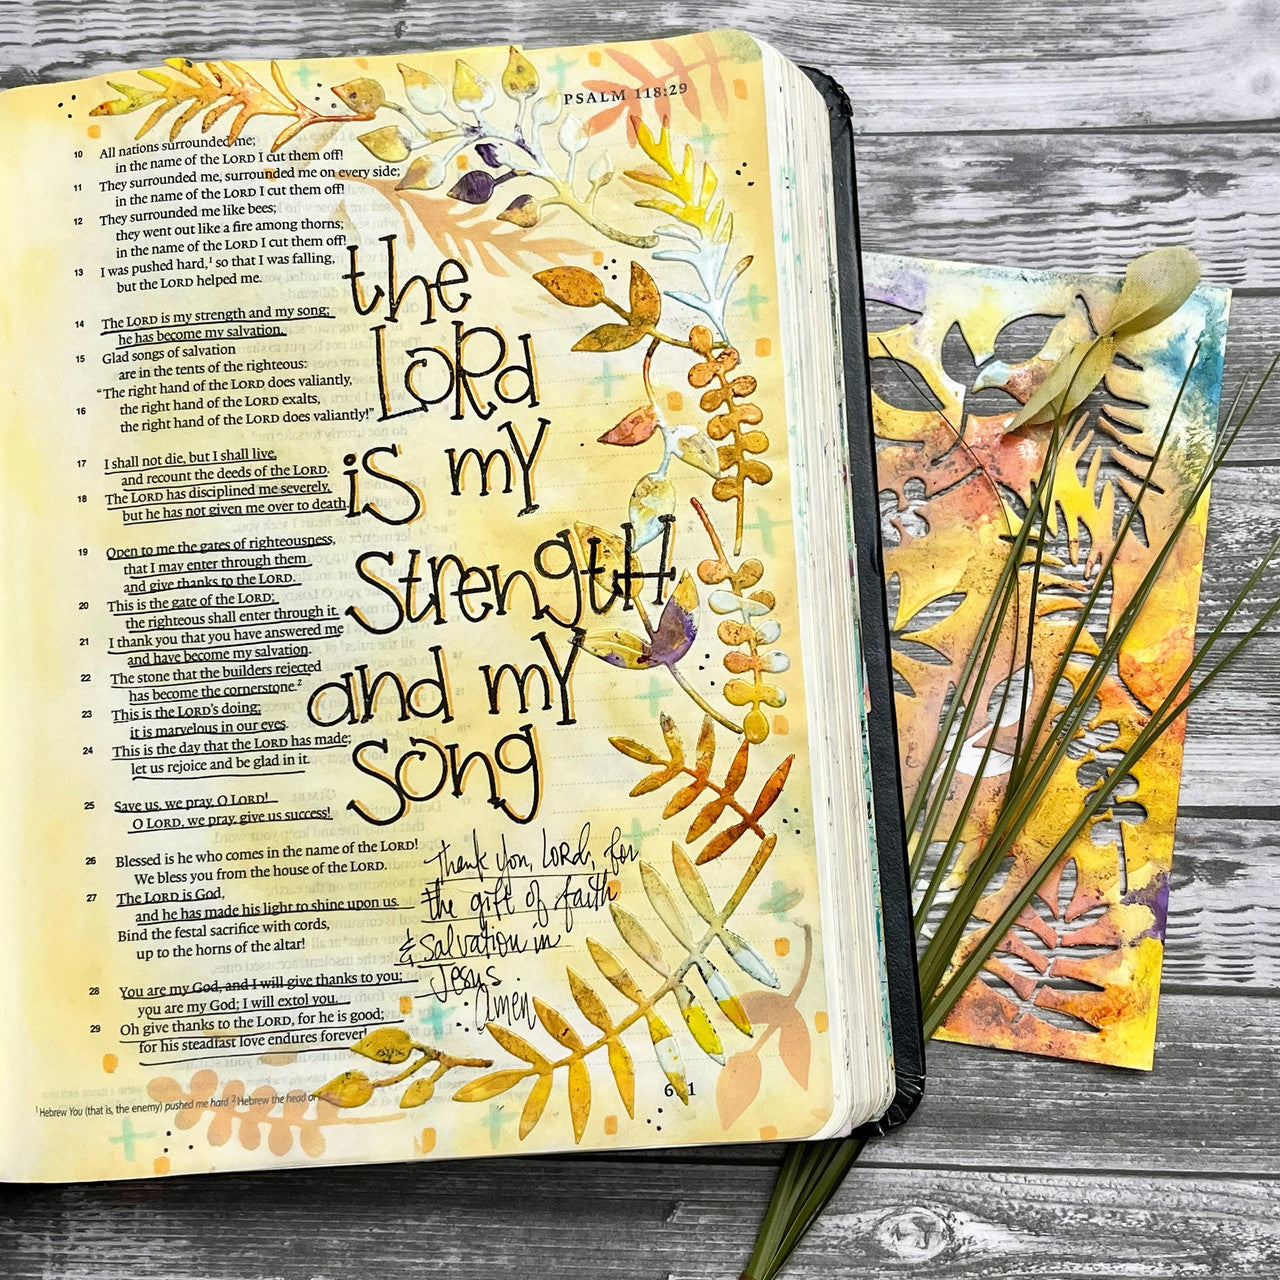 PSALM 118:29
10 All nations surrounded me;
in the name of the LORD I cut them off!
11 They surrounded me, surrounded me on every side;
in the name of the LORD I cut them off!
12 They surrounded me like bees;
they went out like a fire among thorns;
in the name of the LORD I cut them off!
13 I was pushed hard,¹ so that I was falling,
but the LORD helped me.
14 The LORD is my strength and my song;
he has become my salvation.
15 Glad songs of salvation
are in the tents of the righteous:
“The right hand of the LORD does valiantly,
16 the right hand of the LORD exalts,
the right hand of the LORD does valiantly!”
17 I shall not die, but I shall live,
and recount the deeds of the LORD.
18 The LORD has disciplined me severely,
but he has not given me over to death.
19 Open to me the gates of righteousness,
that I may enter through them
and give thanks to the LORD.
20 This is the gate of the LORD;
the righteous shall enter through it.
21 I thank you that you have answered me
and have become my salvation.
22 The stone that the builders rejected
has become the cornerstone.²
23 This is the LORD's doing;
it is marvelous in our eyes.
24 This is the day that the LORD has made;
let us rejoice and be glad in it.
25 Save us, we pray, O LORD!
O LORD, we pray, give us success!
26 Blessed is he who comes in the name of the LORD!
We bless you from the house of the LORD.
27 The LORD is God,
and he has made his light to shine upon us.
Bind the festal sacrifice with cords,
up to the horns of the altar!
28 You are my God, and I will give thanks to you;
you are my God; I will extol you.
29 Oh give thanks to the LORD, for he is good;
for his steadfast love endures forever!
the
LORd
is my
strengtH
and my
song
thank you, LORd, for
the gift of faith
& salvation in
Jesus.
amen
¹ Hebrew You (that is, the enemy) pushed me hard ² Hebrew the head